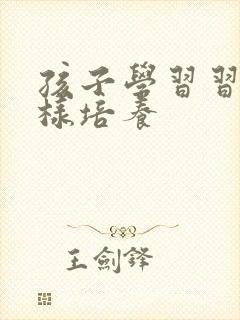 孩子學習習
樣培養
王劍鋒